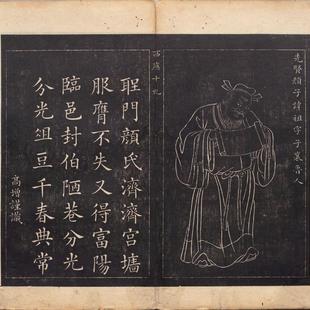 先賢顏子諱祖字子襄魯人
聖門顏氏濟濟宮墻
服膺不失又得富陽
臨邑封伯陋巷分光
分光俎豆千春典常
高增謹識